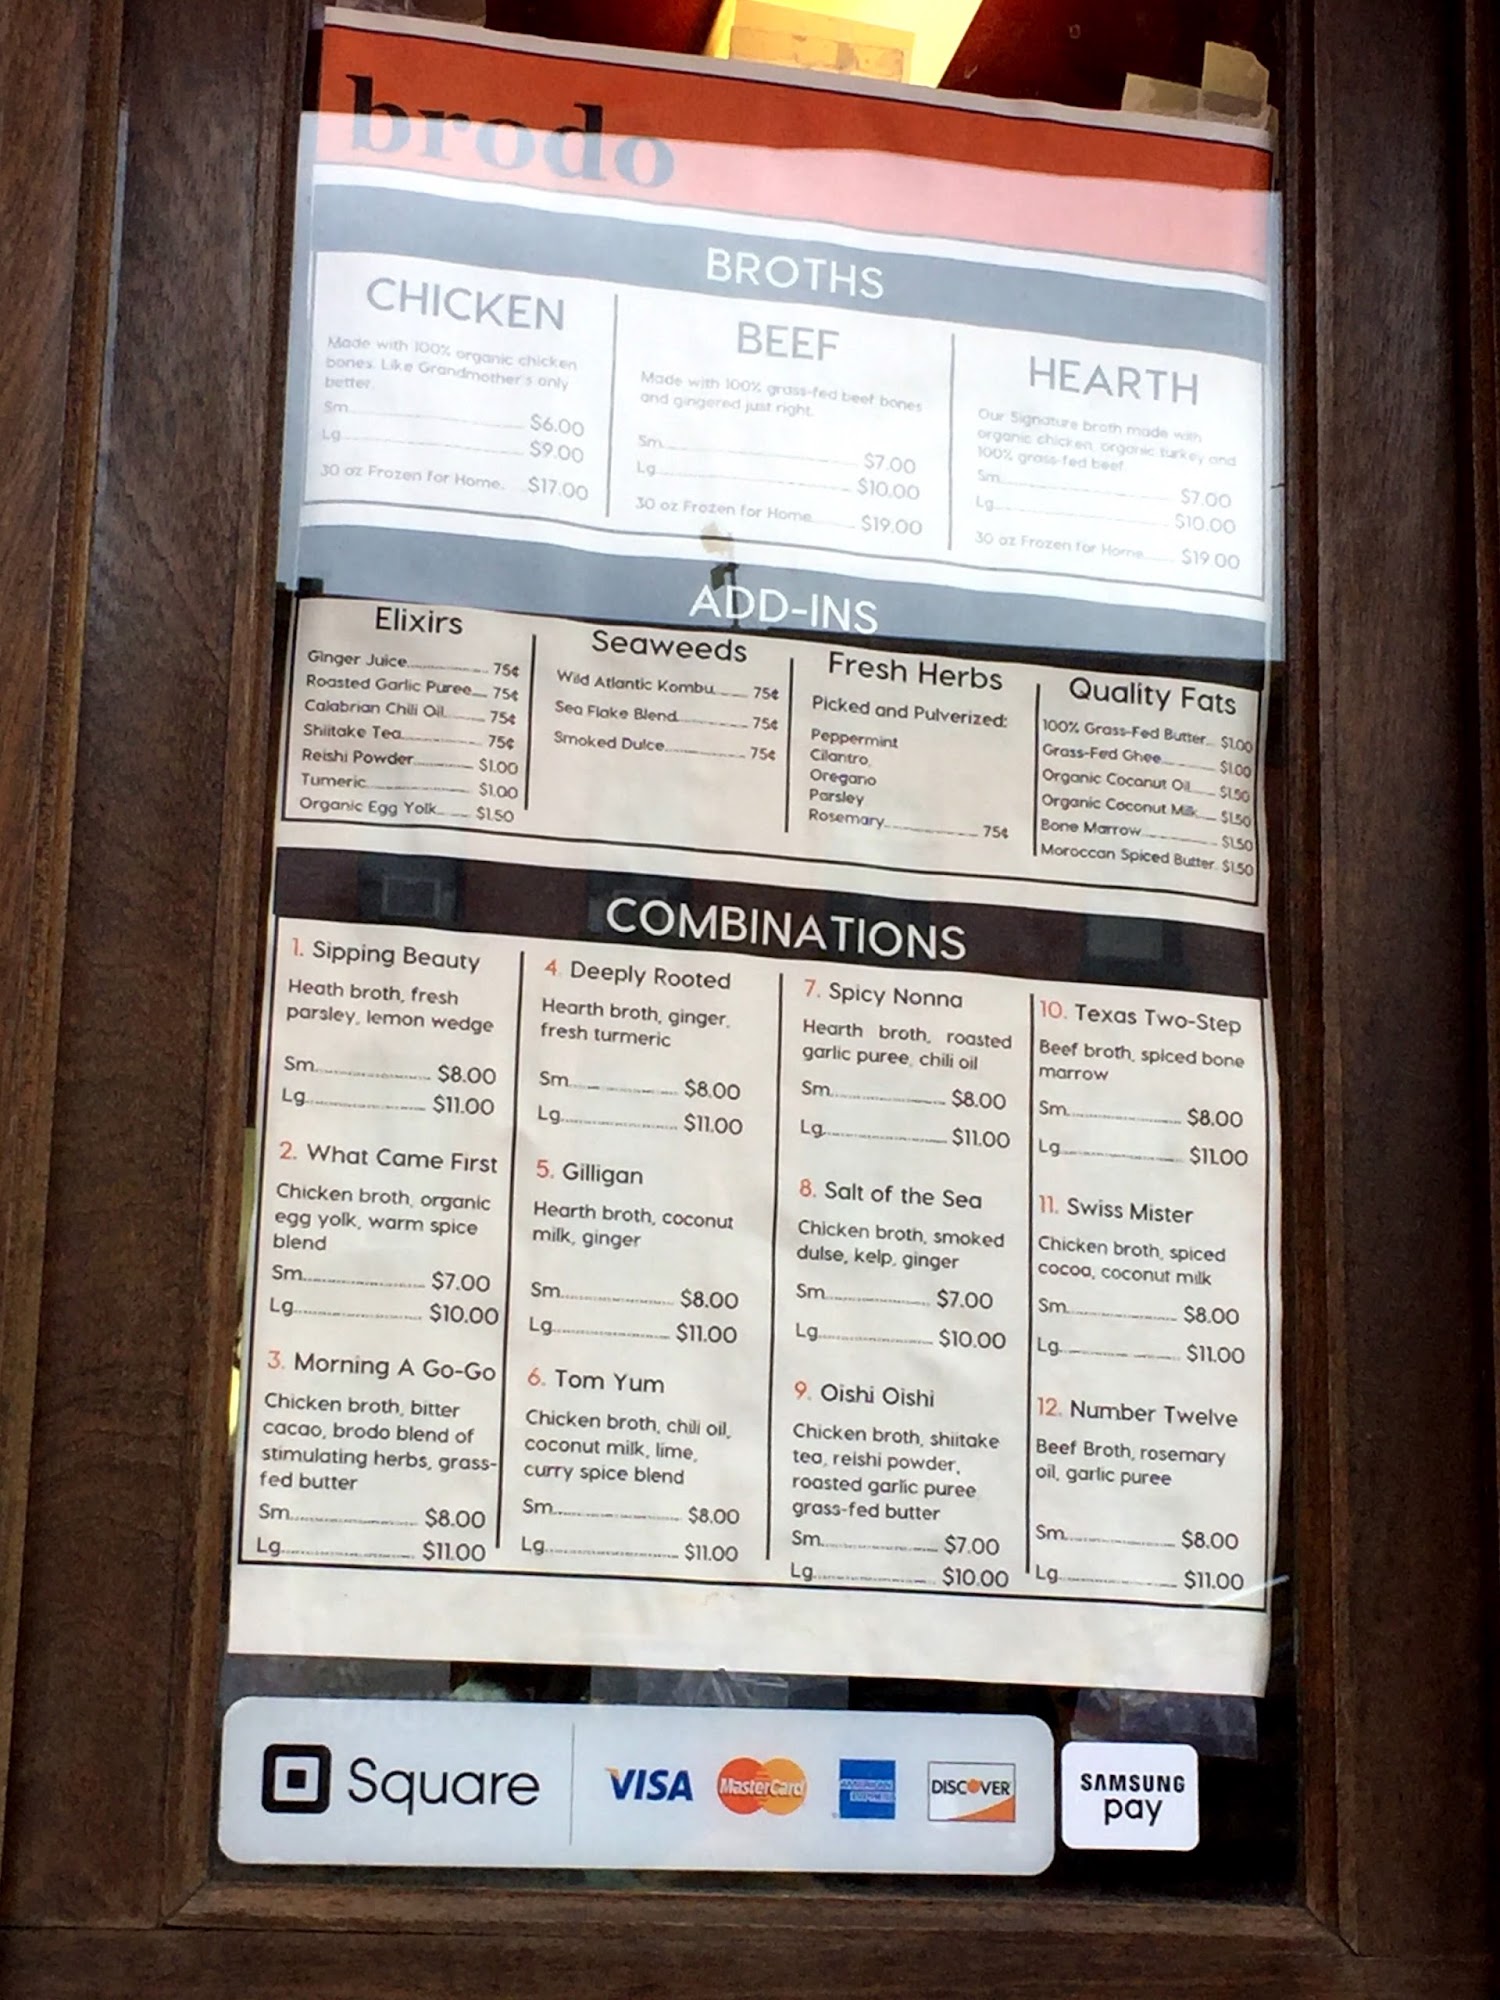 brodo
BROTHS
CHICKEN
Made with 100% organic chicken
bones. Like Grandmother's only
better.
Sm. $6.00
Lg. $9.00
30 oz Frozen for Home. $17.00
BEEF
Made with 100% grass-fed beef bones
and gingered just right.
Sm. $7.00
Lg. $10.00
30 oz Frozen for Home $19.00
HEARTH
Our Signature broth made with
organic chicken, organic turkey and
100% grass-fed beef
Sm. $7.00
Lg. $10.00
30 oz Frozen for Home $19.00
ADD-INS
Elixirs
Ginger Juice 75¢
Roasted Garlic Puree 75¢
Calabrian Chili Oil 75¢
Shiitake Tea 75¢
Reishi Powder $1.00
Tumeric $1.00
Organic Egg Yolk $1.50
Seaweeds
Wild Atlantic Kombu 75¢
Sea Flake Blend 75¢
Smoked Dulce 75¢
Fresh Herbs
Picked and Pulverized:
Peppermint
Cilantro
Oregano
Parsley
Rosemary 75¢
Quality Fats
100% Grass-Fed Butter $1.00
Grass-Fed Ghee $1.00
Organic Coconut Oil $1.50
Organic Coconut Milk $1.50
Bone Marrow $1.50
Moroccan Spiced Butter $1.50
COMBINATIONS
1. Sipping Beauty
Heath broth, fresh
parsley, lemon wedge
Sm. $8.00
Lg. $11.00
2. What Came First
Chicken broth, organic
egg yolk, warm spice
blend
Sm. $7.00
Lg. $10.00
3. Morning A Go-Go
Chicken broth, bitter
cacao, brodo blend of
stimulating herbs, grass-
fed butter
Sm. $8.00
Lg. $11.00
4. Deeply Rooted
Hearth broth, ginger,
fresh turmeric
Sm. $8.00
Lg. $11.00
5. Gilligan
Hearth broth, coconut
milk, ginger
Sm. $8.00
Lg. $11.00
6. Tom Yum
Chicken broth, chili oil,
coconut milk, lime,
curry spice blend
Sm. $8.00
Lg. $11.00
7. Spicy Nonna
Hearth broth, roasted
garlic puree, chili oil
Sm. $8.00
Lg. $11.00
8. Salt of the Sea
Chicken broth, smoked
dulse, kelp, ginger
Sm. $7.00
Lg. $10.00
9. Oishi Oishi
Chicken broth, shiitake
tea, reishi powder,
roasted garlic puree
grass-fed butter
Sm. $7.00
Lg. $10.00
10. Texas Two-Step
Beef broth, spiced bone
marrow
Sm. $8.00
Lg. $11.00
11. Swiss Mister
Chicken broth, spiced
cocoa, coconut milk
Sm. $8.00
Lg. $11.00
12. Number Twelve
Beef Broth, rosemary
oil, garlic puree
Sm. $8.00
Lg. $11.00
Square VISA MasterCard AMERICAN EXPRESS DISCOVER
SAMSUNG
pay